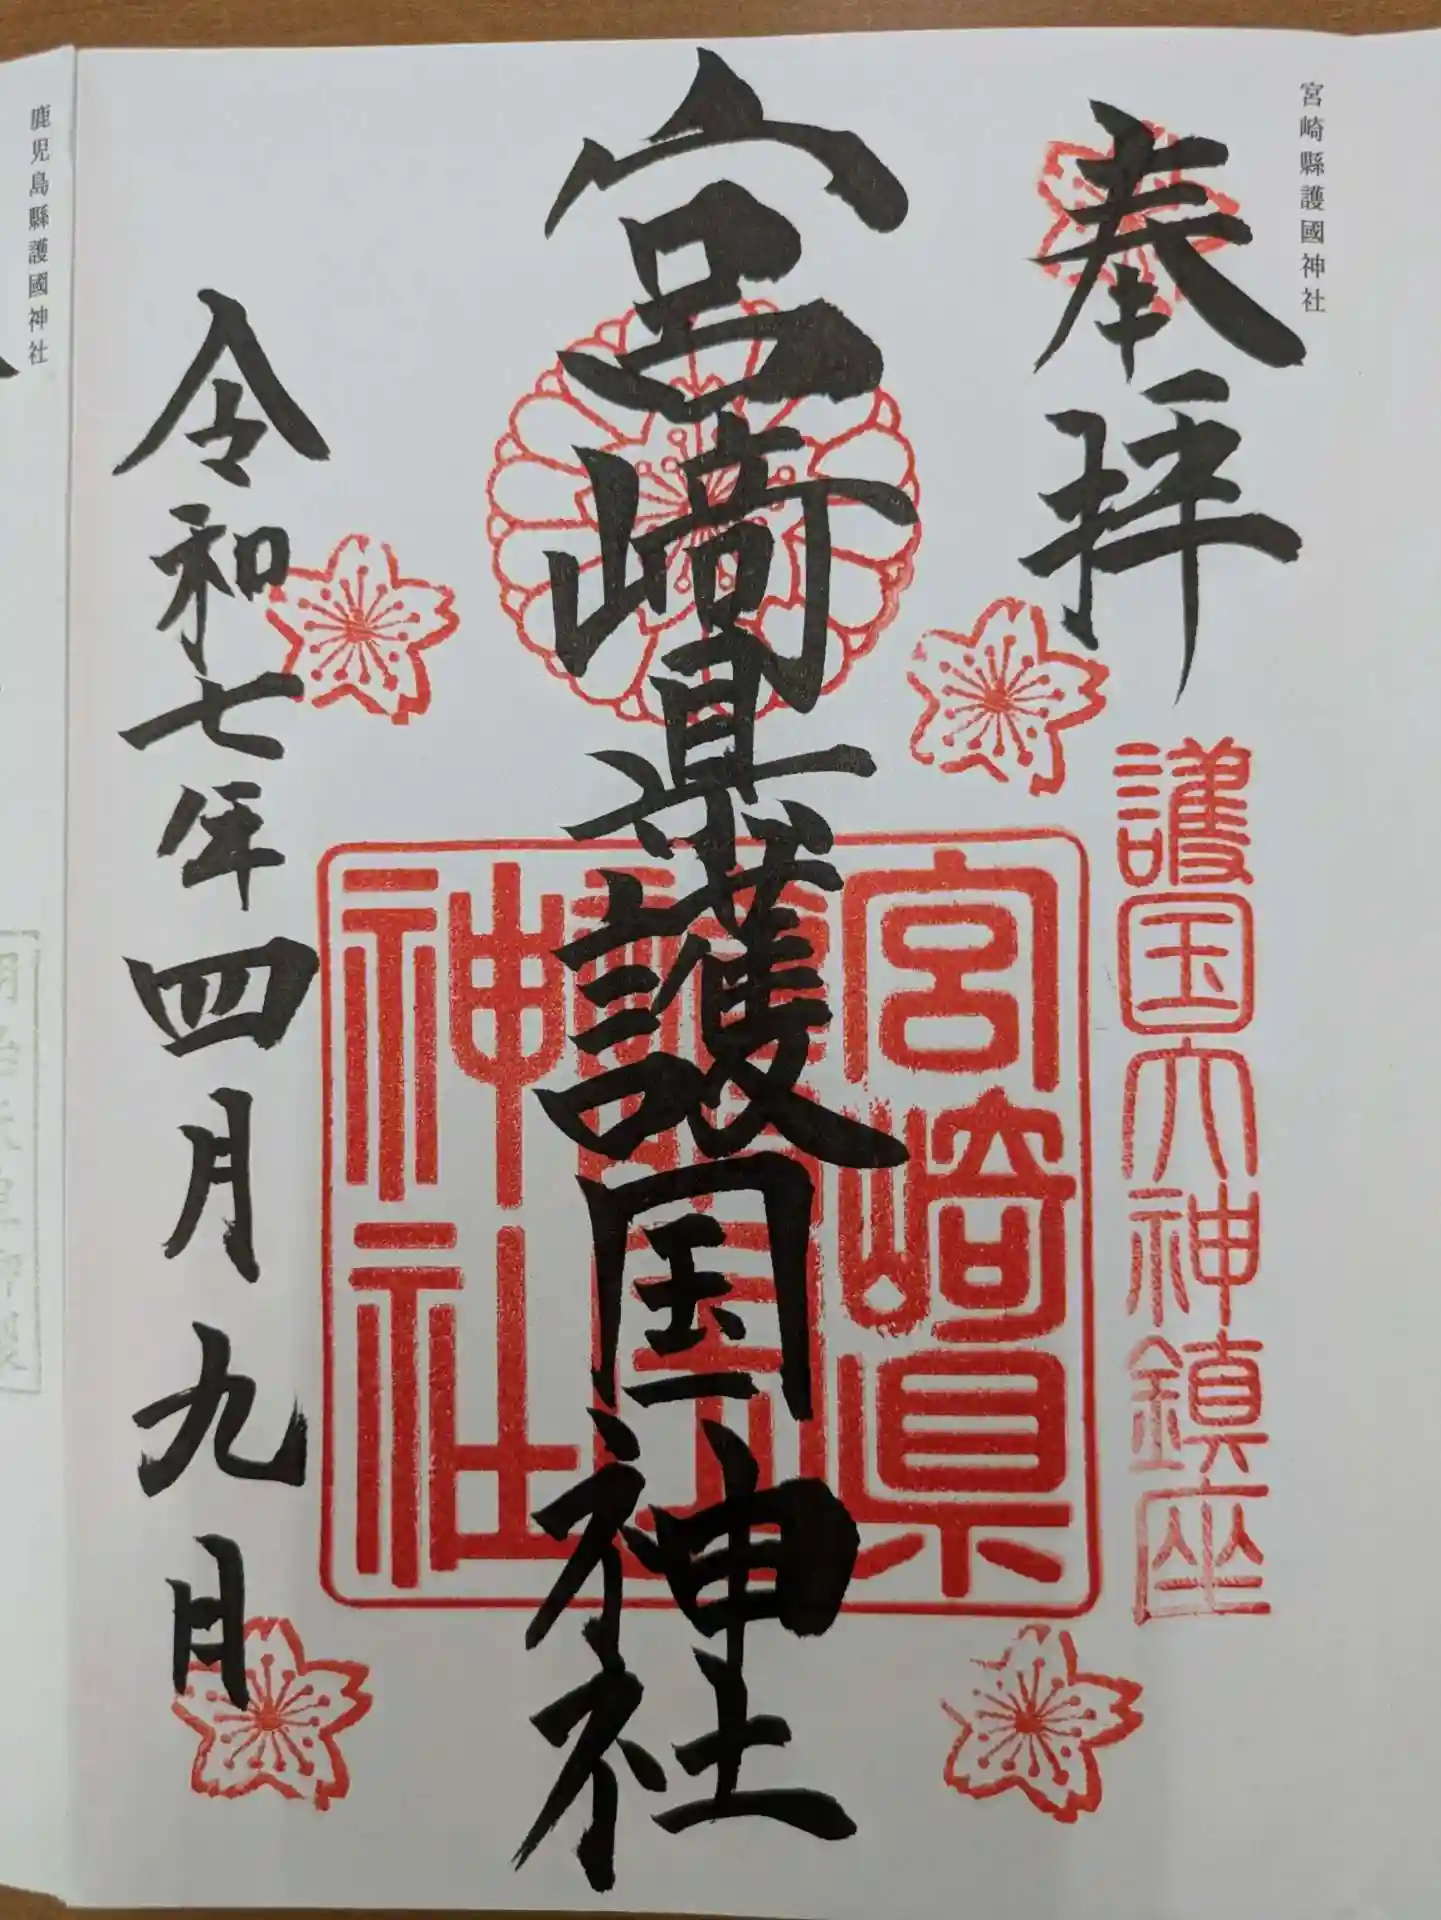 宮崎縣護國神社
奉拝
護国大神鎮座
宮崎県護国神社
宮崎県
神社
令和七年四月九日
鹿児島縣護國神社